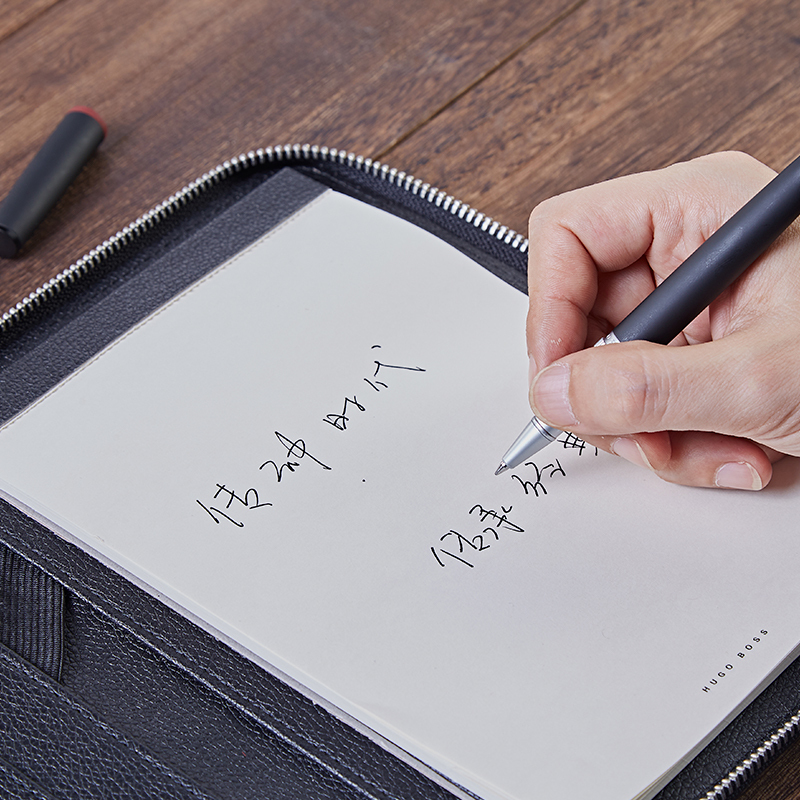 传神时代
传承经典
HUGO BOSS